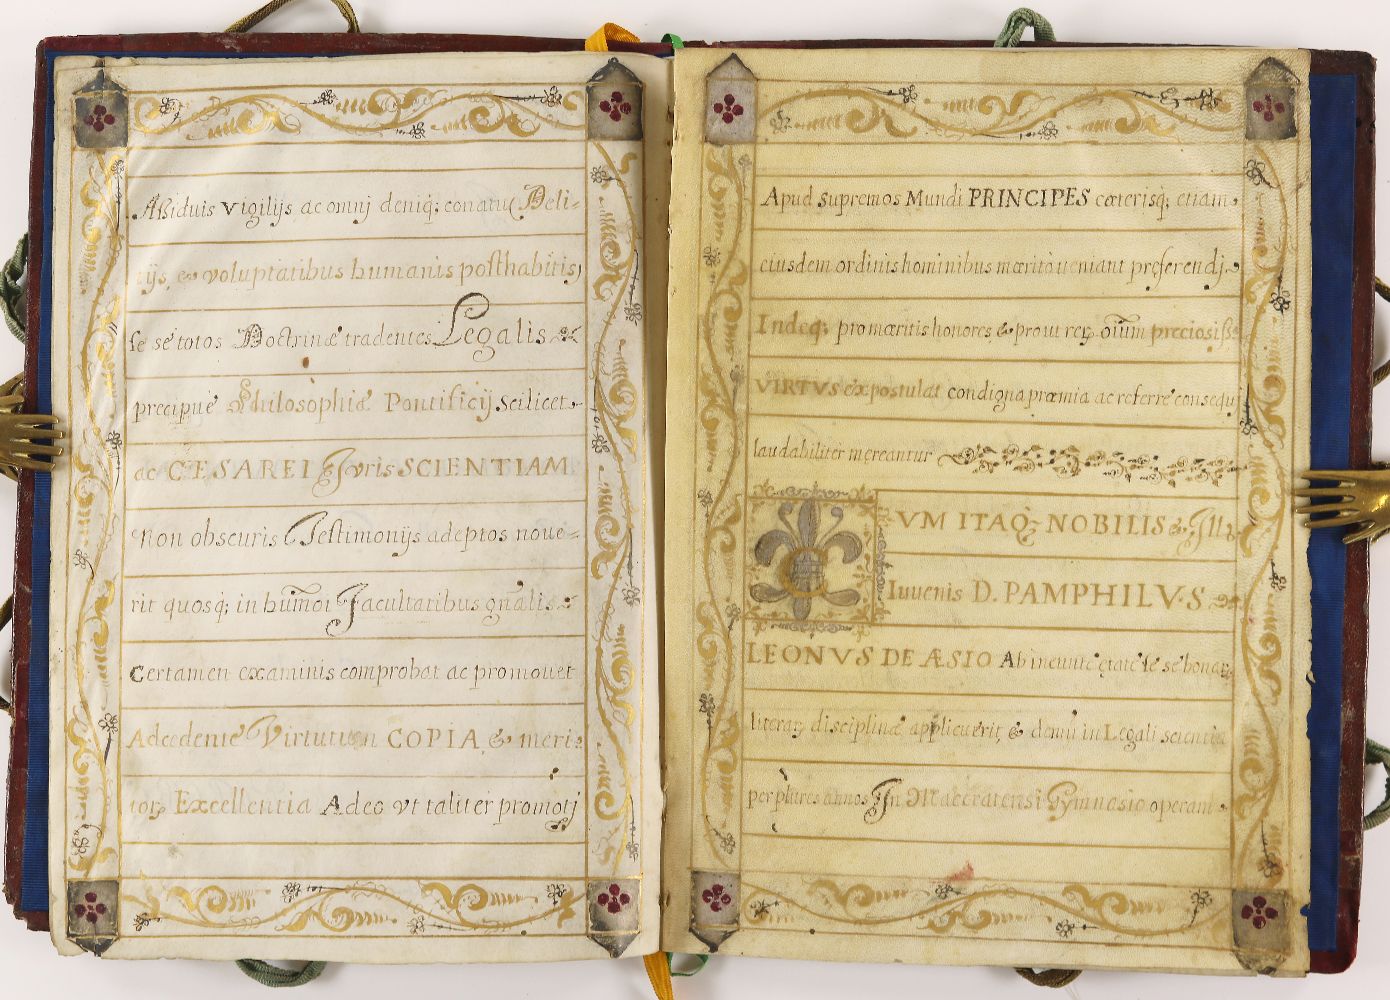 Aßiduis Vigilijs ac omnj deniq; conatu Deli-
tijs, & voluptatibus humanis posthabitis,
se se totos Doctrinæ tradentes Legalis
precipuè Philosophiæ Pontificij Scilicet
ac CESAREI Juris SCIENTIAM
Non obscuris Testimonijs adeptos noue-
rit quosq; in hum̃oi Facultatibus gñalis
Certamen examinis comprobat ac promouet
Adcedente Virtutum COPIA, & meri-
torꝝ Excellentia Adeo vt taliter promotj
Apud Supremos Mundi PRINCIPES cæterisq; etiam
eiusdem ordinis hominibus mœritò ueniant preferendj
Indeq; pro mœritis honores, & prout rerꝝ oĩum preciosiss.
VIRTVS expostulat condigna præmia ac referre consequj
laudabiliter mereantur
CVM ITAQ; NOBILIS & Jll.
Iuuenis D. PAMPHILVS
LEONVS DE ÆSIO Ab ineunte ętate se se bonarꝝ
literarꝝ disciplinæ applicuerit, & demũ in Legali scientia
per plures annos Jn Maceratensi Gymnasio operam